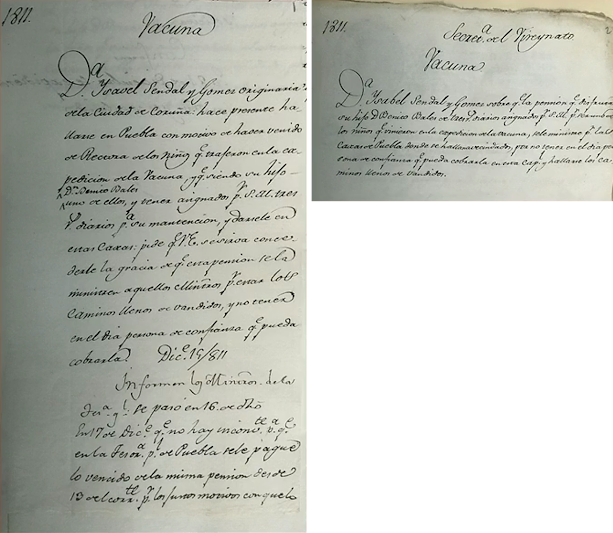 1811.
Vacuna
D.ª Ysavel Sendal y Gomes originaria
de la Ciudad de Coruña: hace presente ha
llarse en Puebla con motivo de haver venido
de Rectora de los Niños q.e trajeron en la ex-
pedicion de la Vacuna, y q.e siendo su hijo
D.n Benito Vales
uno de ellos, y tener asignados p.r S.M. tres
r.s diarios p.ª su mantencion, y darsele en
estas Caxas: pide q.e V.E. se sirva conce-
derle la gracia de q.e esta pension se la
ministren aquellos Ministros p.r estar los
Caminos llenos de vandidos, y no tener
en el dia persona de confianza q.e pueda
cobrarla. Dic.e 15/811
Informen los Ministros de la
Tes.ª g.l Se pasó en 16. de dho
En 17 de Dic.e q.e no hay inconv.te p.ª q.e
en la Tesor.ª p.l de Puebla se le pague
lo vencido de la misma pension desde
13 del corr.te p.r los justos motivos con que lo
1811.
Secret.ª del Vireynato
2
Vacuna
D.ª Ysabel Sendal y Gomes sobre q.e la pension q.e disfruta
su hijo D. Benito Vales de tres r.s diarios asignados p.r S.M. p.r ser uno de
los niños q.e vinieron en la expedicion de la vacuna, se le ministre p.r las
Caxas de Puebla donde se halla avecindada, por no tener en el dia per
sona de confianza q.e pueda cobrarla en esta Cap.l y hallarse los ca-
minos llenos de vandidos.